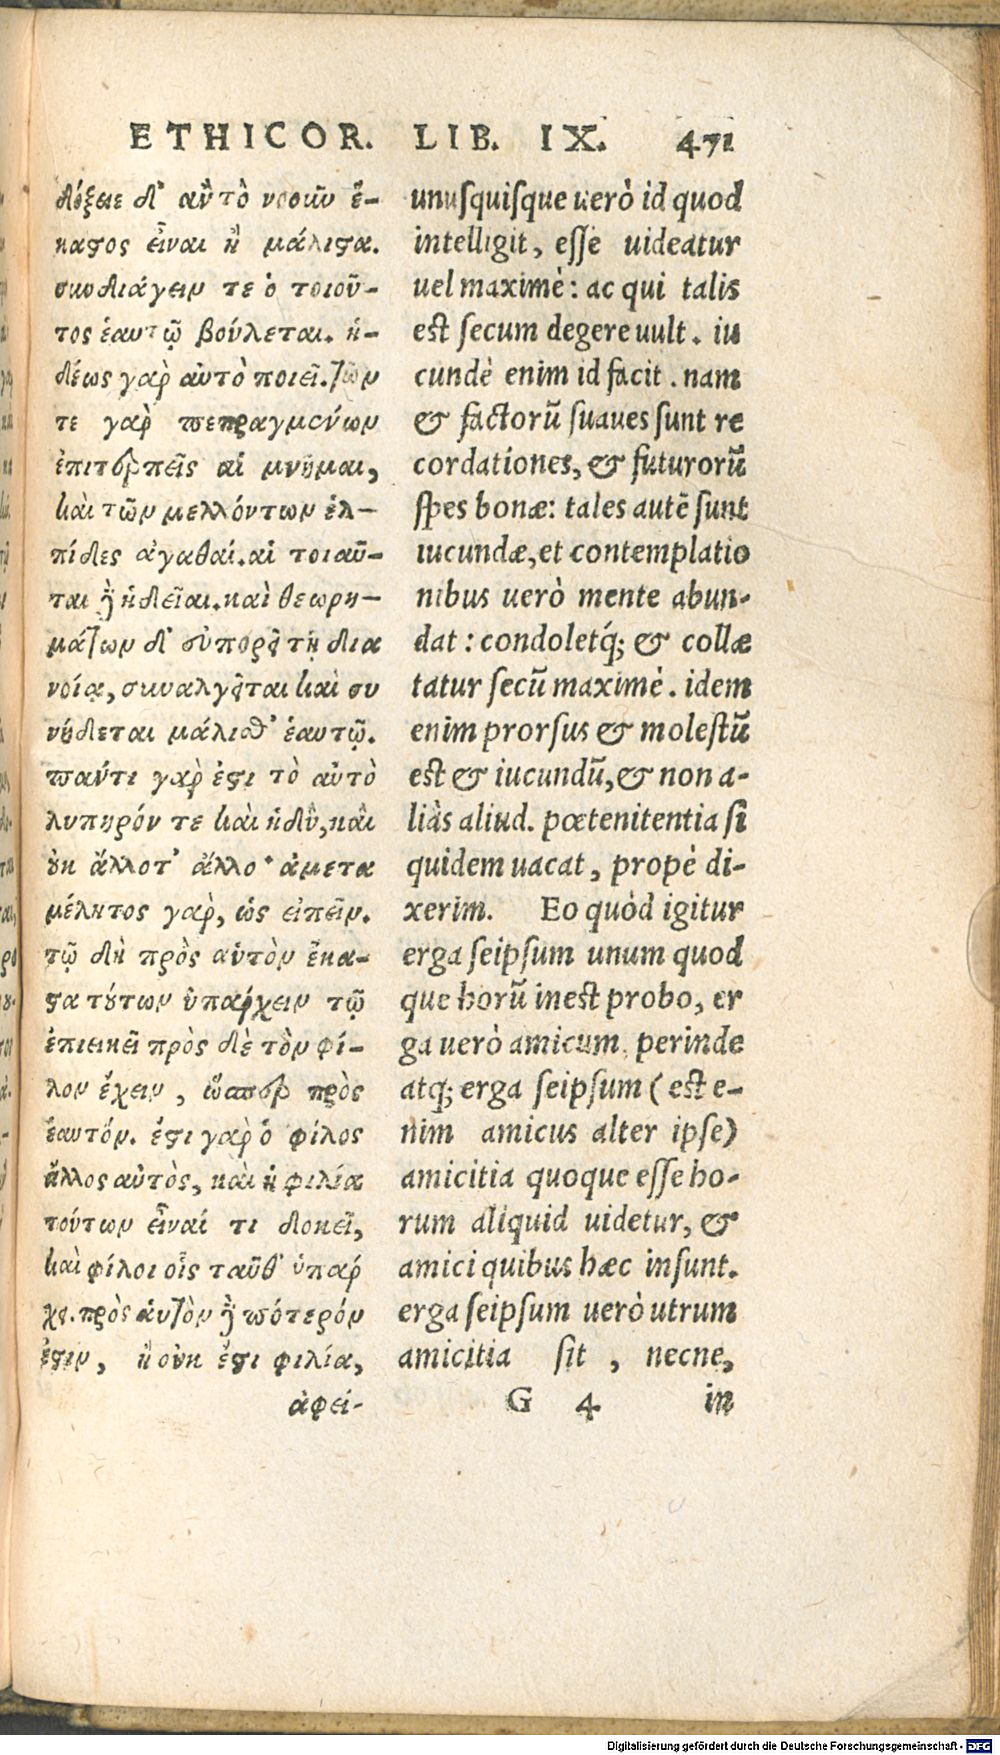 ETHICOR. LIB. IX. 471
δόξειε δ' ἂν τὸ νοοῦν ἕ-
καστος εἶναι ἢ μάλιστα.
συνδιάγειν τε ὁ τοιοῦ-
τος ἑαυτῷ βούλεται. ἡ-
δέως γὰρ αὐτὸ ποιεῖ. τῶν
τε γὰρ πεπραγμένων
ἐπιτερπεῖς αἱ μνῆμαι,
καὶ τῶν μελλόντων ἐλ-
πίδες ἀγαθαί. αἱ τοιαῦ-
ται δὲ ἡδεῖαι. καὶ θεωρη-
μάτων δ' εὐπορεῖ τῇ δια
νοίᾳ, συναλγεῖται καὶ συ
νήδεται μάλισθ' ἑαυτῷ.
πάντι γάρ ἐστι τὸ αὐτὸ
λυπηρόν τε καὶ ἡδὺ, καὶ
οὐκ ἄλλοτ' ἄλλο· ἀμετα
μέλητος γὰρ, ὡς εἰπεῖν.
τῷ δὴ πρὸς αὑτὸν ἕκα-
στα τούτων ὑπαρχειν τῷ
ἐπιεικεῖ πρὸς δὲ τὸν φί-
λον ἔχειν, ὥσπερ πρὸς
ἑαυτόν. ἔστι γὰρ ὁ φίλος
ἄλλος αὐτὸς, καὶ ἡ φιλία
τούτων εἶναί τι δοκεῖ,
καὶ φίλοι οἷς ταῦθ' ὑπαρ
χει. πρὸς αὑτὸν δὲ πότερόν
ἐστιν, ἢ οὐκ ἔστι φιλία,
ἀφεί-
unusquisque uerò id quod
intelligit, esse uideatur
uel maximè: ac qui talis
est secum degere uult. iu
cundè enim id facit. nam
& factorũ suaues sunt re
cordationes, & futurorũ
spes bonæ: tales autẽ sunt
iucundæ, et contemplatio
nibus uerò mente abun-
dat: condoletq́; & collæ
tatur secũ maximè. idem
enim prorsus & molestũ
est & iucundũ, & non a-
liàs aliud. pœtenitentia si
quidem uacat, propè di-
xerim. Eo quòd igitur
erga seipsum unum quod
que horũ inest probo, er
ga uerò amicum perinde
atq; erga seipsum (est e-
nim amicus alter ipse)
amicitia quoque esse ho-
rum aliquid uidetur, &
amici quibus hæc insunt.
erga seipsum uerò utrum
amicitia sit, necne,
G 4 in
Digitalisierung gefördert durch die Deutsche Forschungsgemeinschaft - DFG